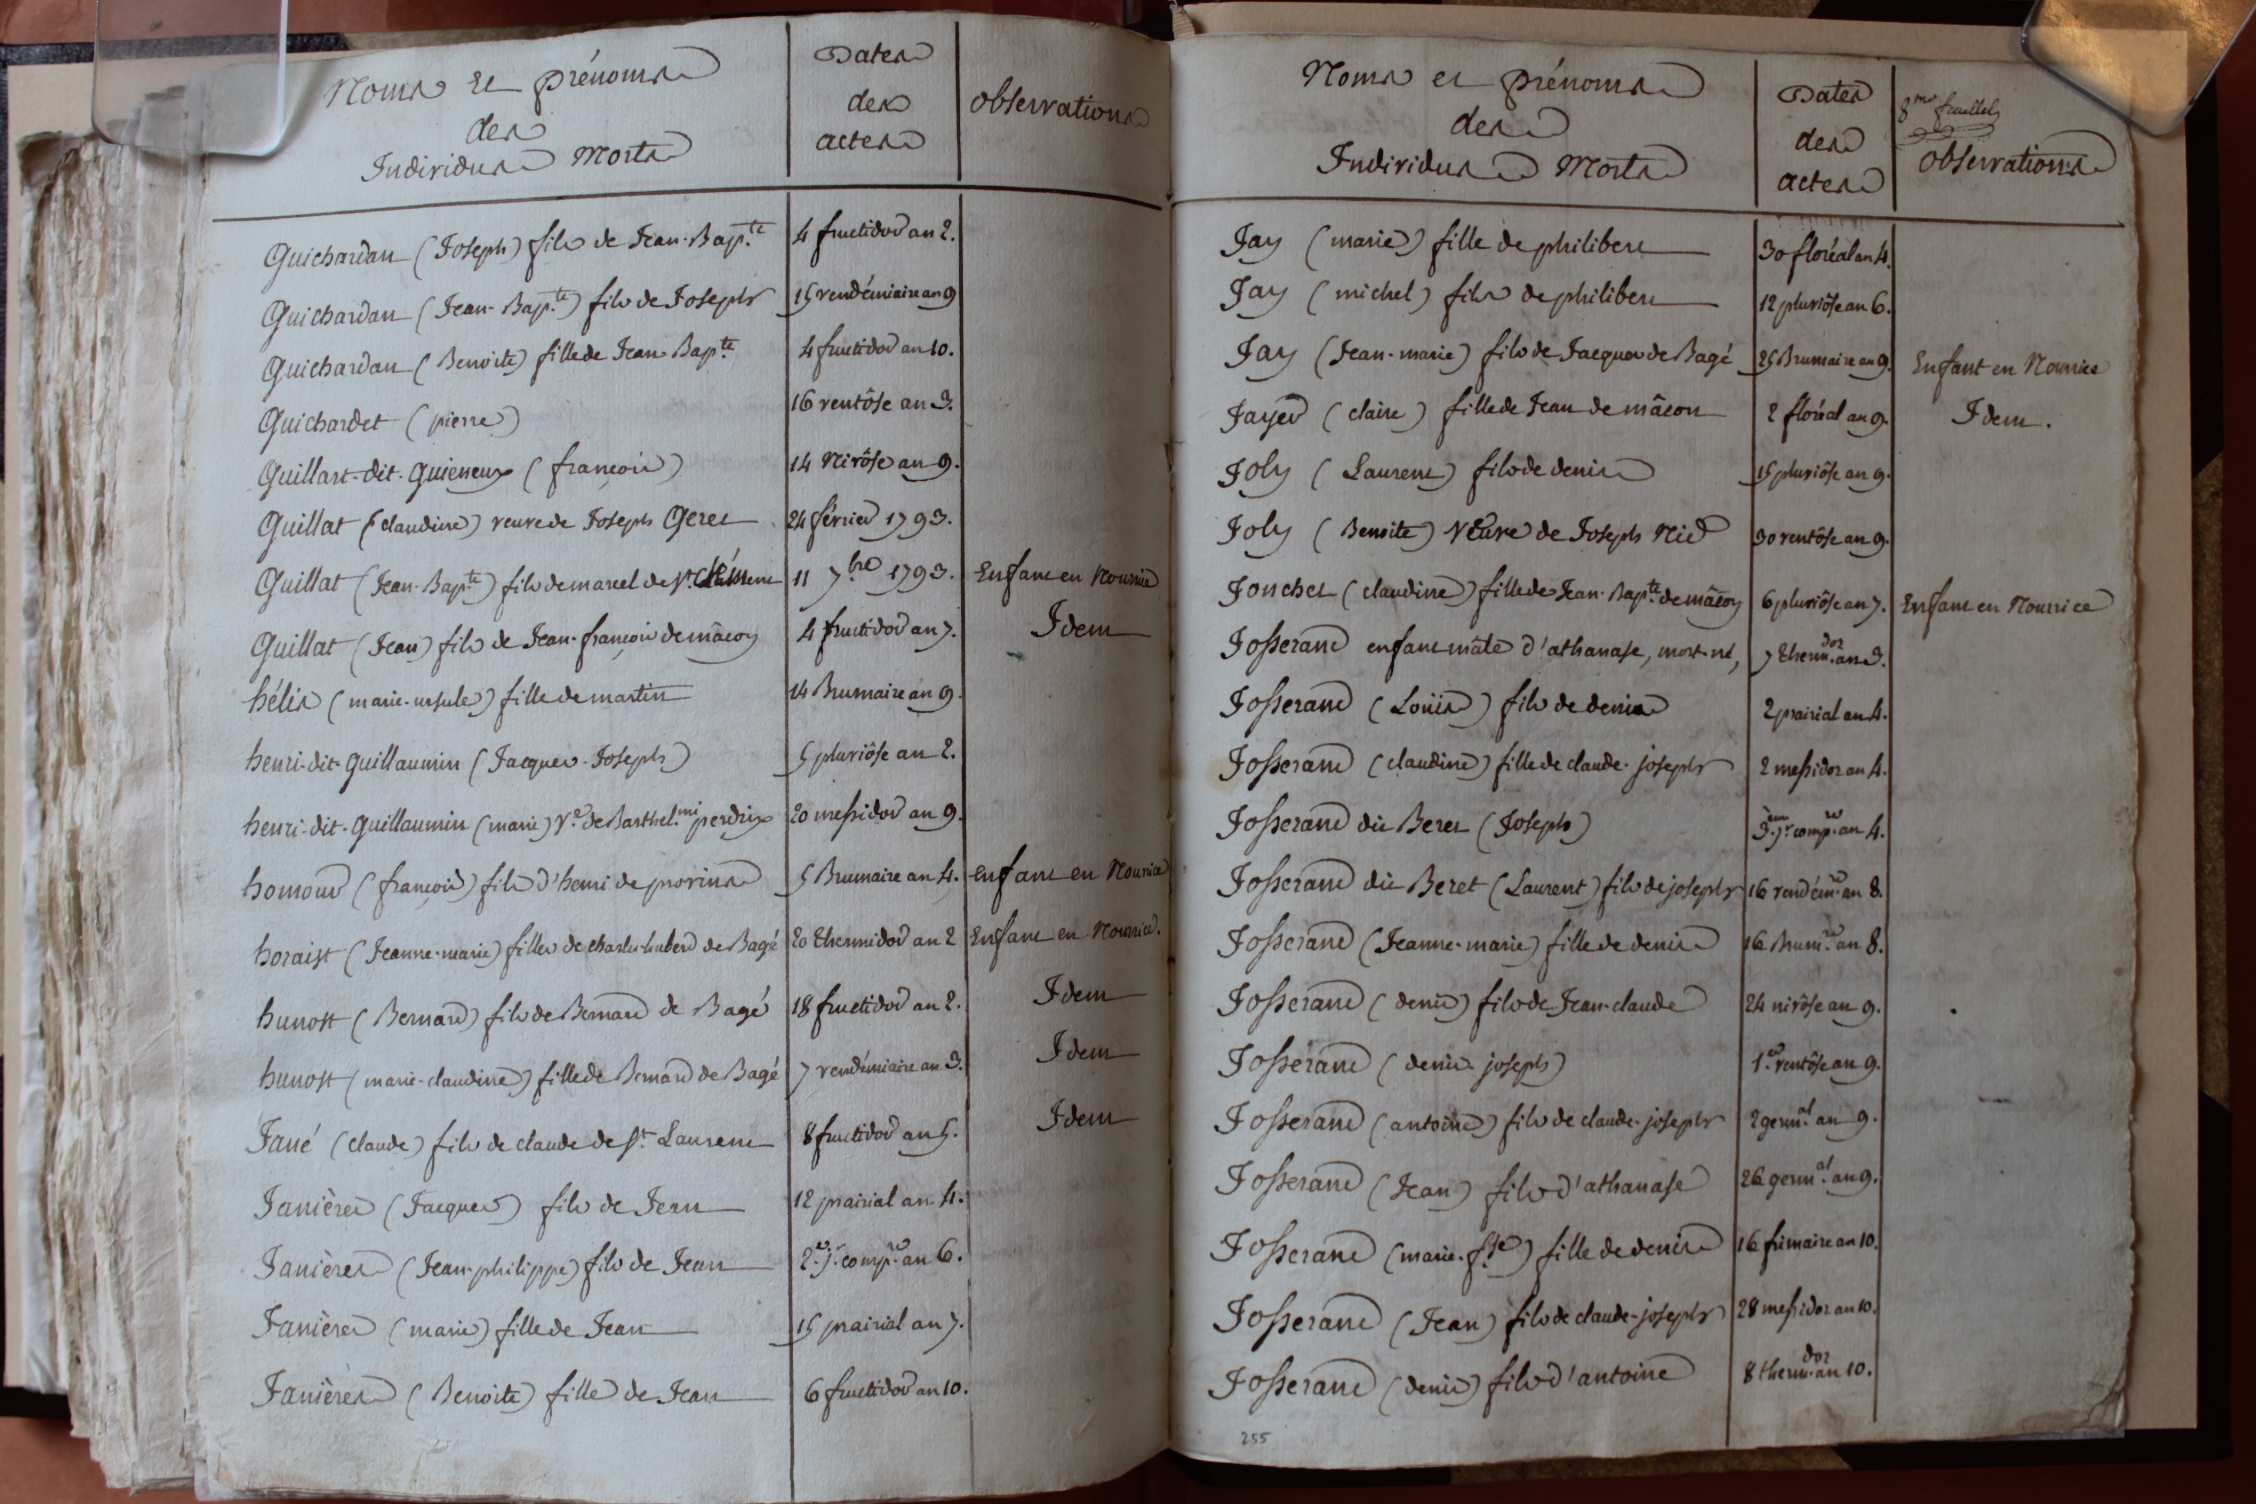 Noms et prénoms
des
Individus Morts
Dates
des
actes
observations
Guichardan (Joseph) fils de Jean-Bap.te 4 fructidor an 2.
Guichardan (Jean-Bap.te) fils de Joseph 15 vendémiaire an 9
Guichardan (Benoite) fille de Jean Bap.te 4 fructidor an 10.
Guichardet (pierre) 16 ventôse an 3.
Guillart-dit-Guieneux (françois) 14 Nivôse an 9.
Guillat (claudine) veuve de Joseph Geret 24 février 1793.
Guillat (Jean-Bap.te) fils de marcel de St. Clément 11 7.bre 1793. Enfant en Nourrice
Guillat (Jean) fils de Jean-françois de mâcon 4 fructidor an 7. Idem
hélis (marie-ursule) fille de martin 14 Brumaire an 9.
henri-dit-Guillaumin (Jacques-Joseph) 5 pluviôse an 2.
henri-dit-Guillaumin (marie) V.e de Barthel.mi perdrix 20 messidor an 9.
homour (françois) fils d'henri de provins 5 Brumaire an 4. enfant en Nourrice
horaist (Jeanne-marie) fille de charles-hubert de Bagé 20 thermidor an 2 Enfant en Nourrice.
hunost (Bernard) fils de Bernard de Bagé 18 fructidor an 2. Idem
hunost (marie-claudine) fille de Bernard de Bagé 7 vendémiaire an 3. Idem
Jané (claude) fils de claude de St. Laurent 8 fructidor an 5. Idem
Janières (Jacques) fils de Jean 12 prairial an 4.
Janières (Jean-philippe) fils de Jean 2.e j.r comp.re an 6.
Janières (marie) fille de Jean 15 prairial an 7.
Janières (Benoite) fille de Jean 6 fructidor an 10.
Noms et prénoms
des
Individus Morts
Dates
des
actes
8.me feuillet
observations
Jay (marie) fille de philibert 30 floréal an 4.
Jay (michel) fils de philibert 12 pluviôse an 6.
Jay (Jean-marie) fils de Jacques de Bagé 25 Brumaire an 9. Enfant en Nourrice
Jayer (claire) fille de Jean de mâcon 2 floréal an 9. Idem.
Joly (Laurent) fils de denis 15 pluviôse an 9.
Joly (Benoite) veuve de Joseph Nid 30 ventôse an 9.
Jonchet (claudine) fille de Jean-Bap.te de mâcon 6 pluviôse an 7. Enfant en Nourrice
Josserand enfant mâle d'athanase, mort-né, 7 therm.dor an 3.
Josserand (Loüis) fils de denis 2 prairial an 4.
Josserand (claudine) fille de claude-joseph 2 messidor an 4.
Josserand dit Beret (Joseph) 3.em j.r comp.re an 4.
Josserand dit Beret (Laurent) fils de joseph 16 vendém.re an 8.
Josserand (Jeanne-marie) fille de denis 16 Brum.re an 8.
Josserand (denis) fils de Jean-claude 24 nivôse an 9.
Josserand (denis joseph) 1.er ventôse an 9.
Josserand (antoine) fils de claude-joseph 2 germ.al an 9.
Josserand (Jean) fils d'athanase 26 germ.al an 9.
Josserand (marie-f.se) fille de denis 16 frimaire an 10.
Josserand (Jean) fils de claude-joseph 28 messidor an 10.
Josserand (denis) fils d'antoine 8 therm.dor an 10.
255